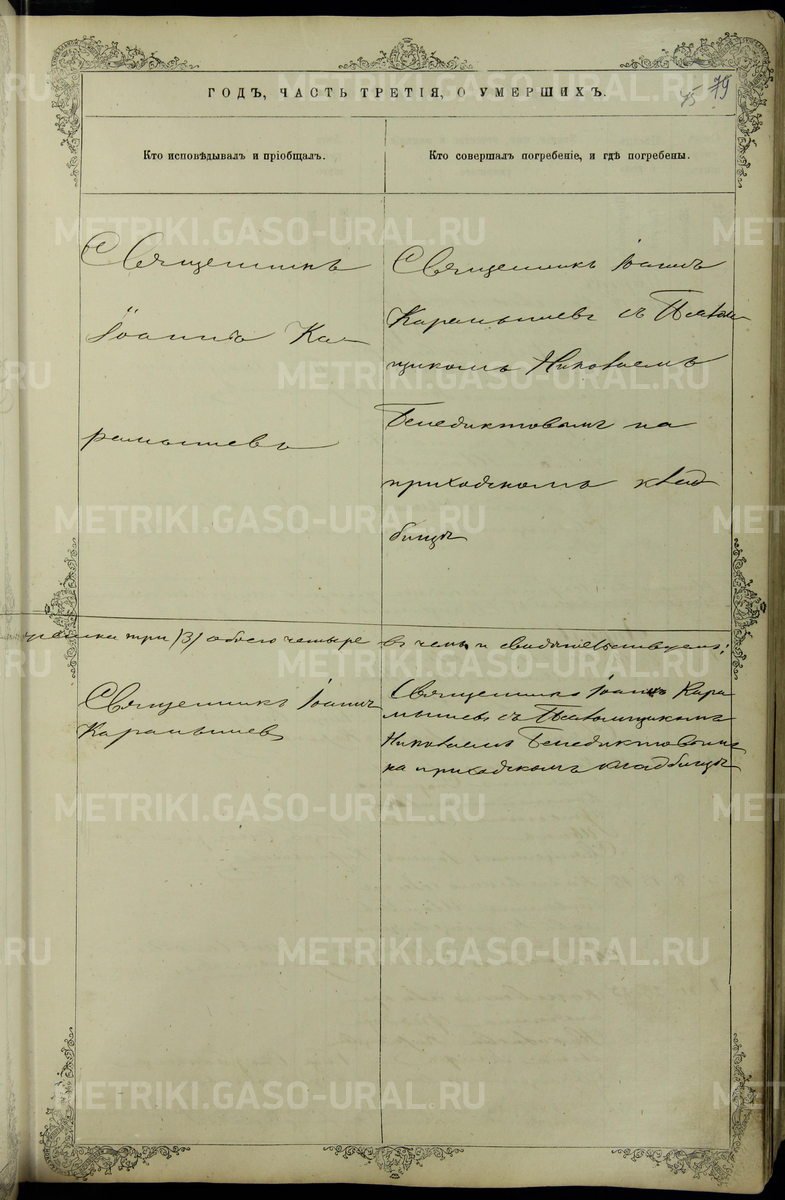 ГОДЪ, ЧАСТЬ ТРЕТІЯ, О УМЕРШИХЪ.
45 79
Кто исповѣдывалъ и пріобщалъ.
Кто совершалъ погребеніе, и гдѣ погребены.
Священникъ
Іоаннъ Ка-
рамышевъ
Священникъ Іоаннъ
Карамышевъ съ Псалом-
щикомъ Николаемъ
Бенедиктовымъ на
приходскомъ клад
бищѣ
три /3/ обоего четыре въ чемъ и свидѣтельствуемъ:
Священникъ Іоаннъ
Карамышевъ
Священникъ Іоаннъ Кара
мышевъ съ Псаломщикомъ
Николаемъ Бенедиктовымъ
на приходскомъ кладбищѣ
METRIKI.GASO-URAL.RU